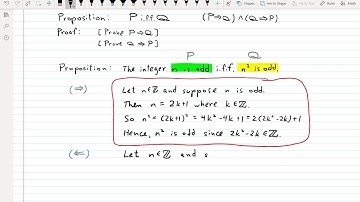 Proposition: P i.f.f. Q (P⇒Q) ∧ (Q⇒P)
Proof: [Prove P⇒Q]
[Prove Q⇒P]
P Q
Proposition: The integer n is odd i.f.f. n² is odd.
(⇒) Let n∈ℤ and suppose n is odd.
Then n = 2k+1 where k∈ℤ.
So n² = (2k+1)² = 4k²-4k+1 = 2(2k²-2k)+1
Hence, n² is odd since 2k²-2k∈ℤ.
(⇐) Let n∈ℤ and s